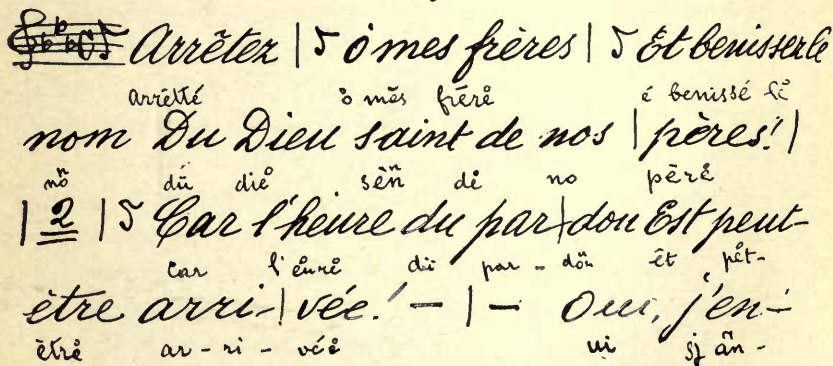 Arrêtez | ô mes frères | Et benissez le
arrêtté ô mês frérè é benissé lè
nom Du Dieu saint de nos | pères! |
nõ dü diè sẽn dè no pérè
| 2 | Car l'heure du par | don Est peut-
car l'eurè dü par - dõn êt pèt-
être arri- | vée! - | - Oui, j'en-
êtrè ar - ri - véè ui sj ãn -